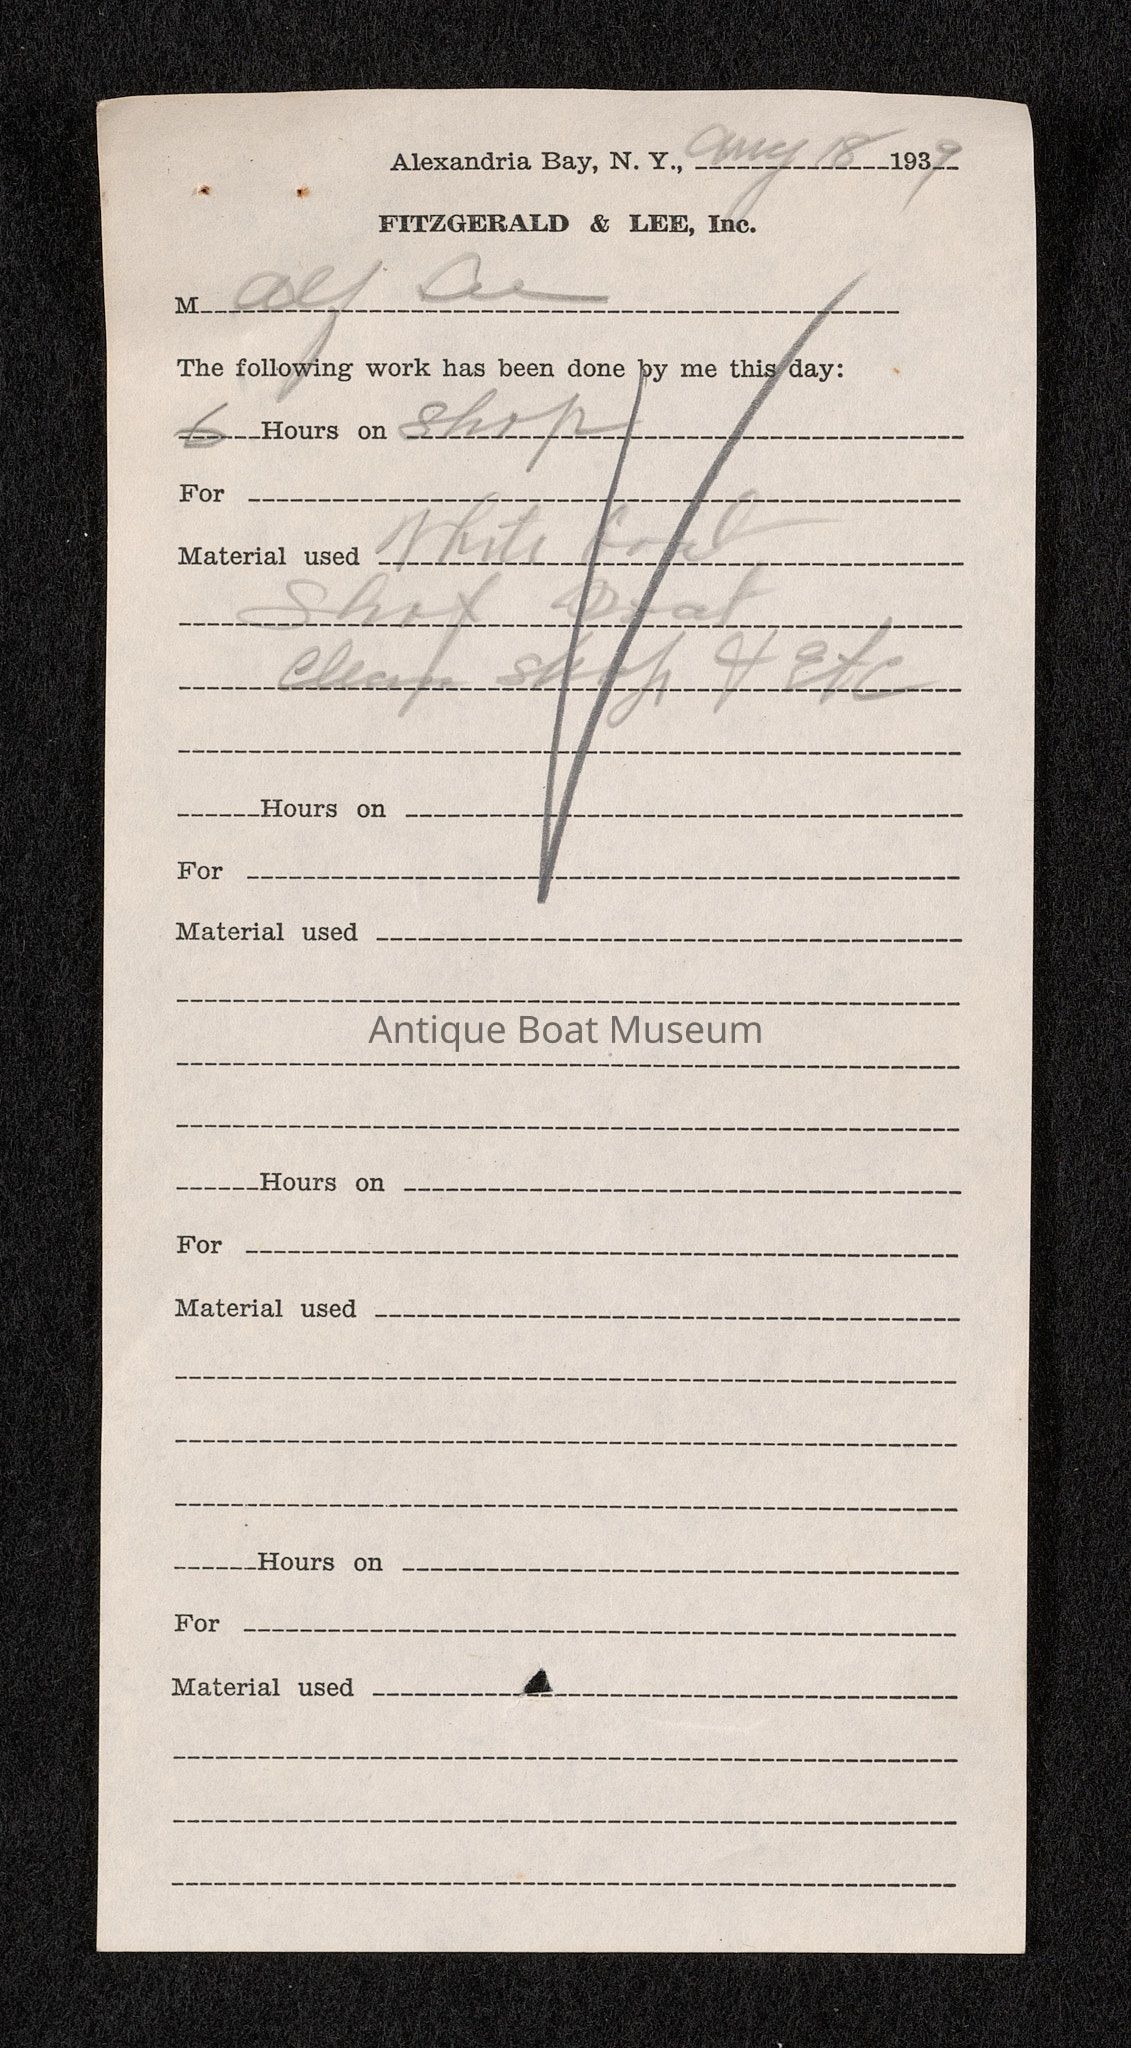 Alexandria Bay, N. Y., Aug 18 1939
FITZGERALD & LEE, Inc.
M Alf Lee
The following work has been done by me this day:
6 Hours on Shop
For
Material used White Coat
Boat
Clean Shop & Etc
Hours on
For
Material used
Antique Boat Museum
Hours on
For
Material used
Hours on
For
Material used